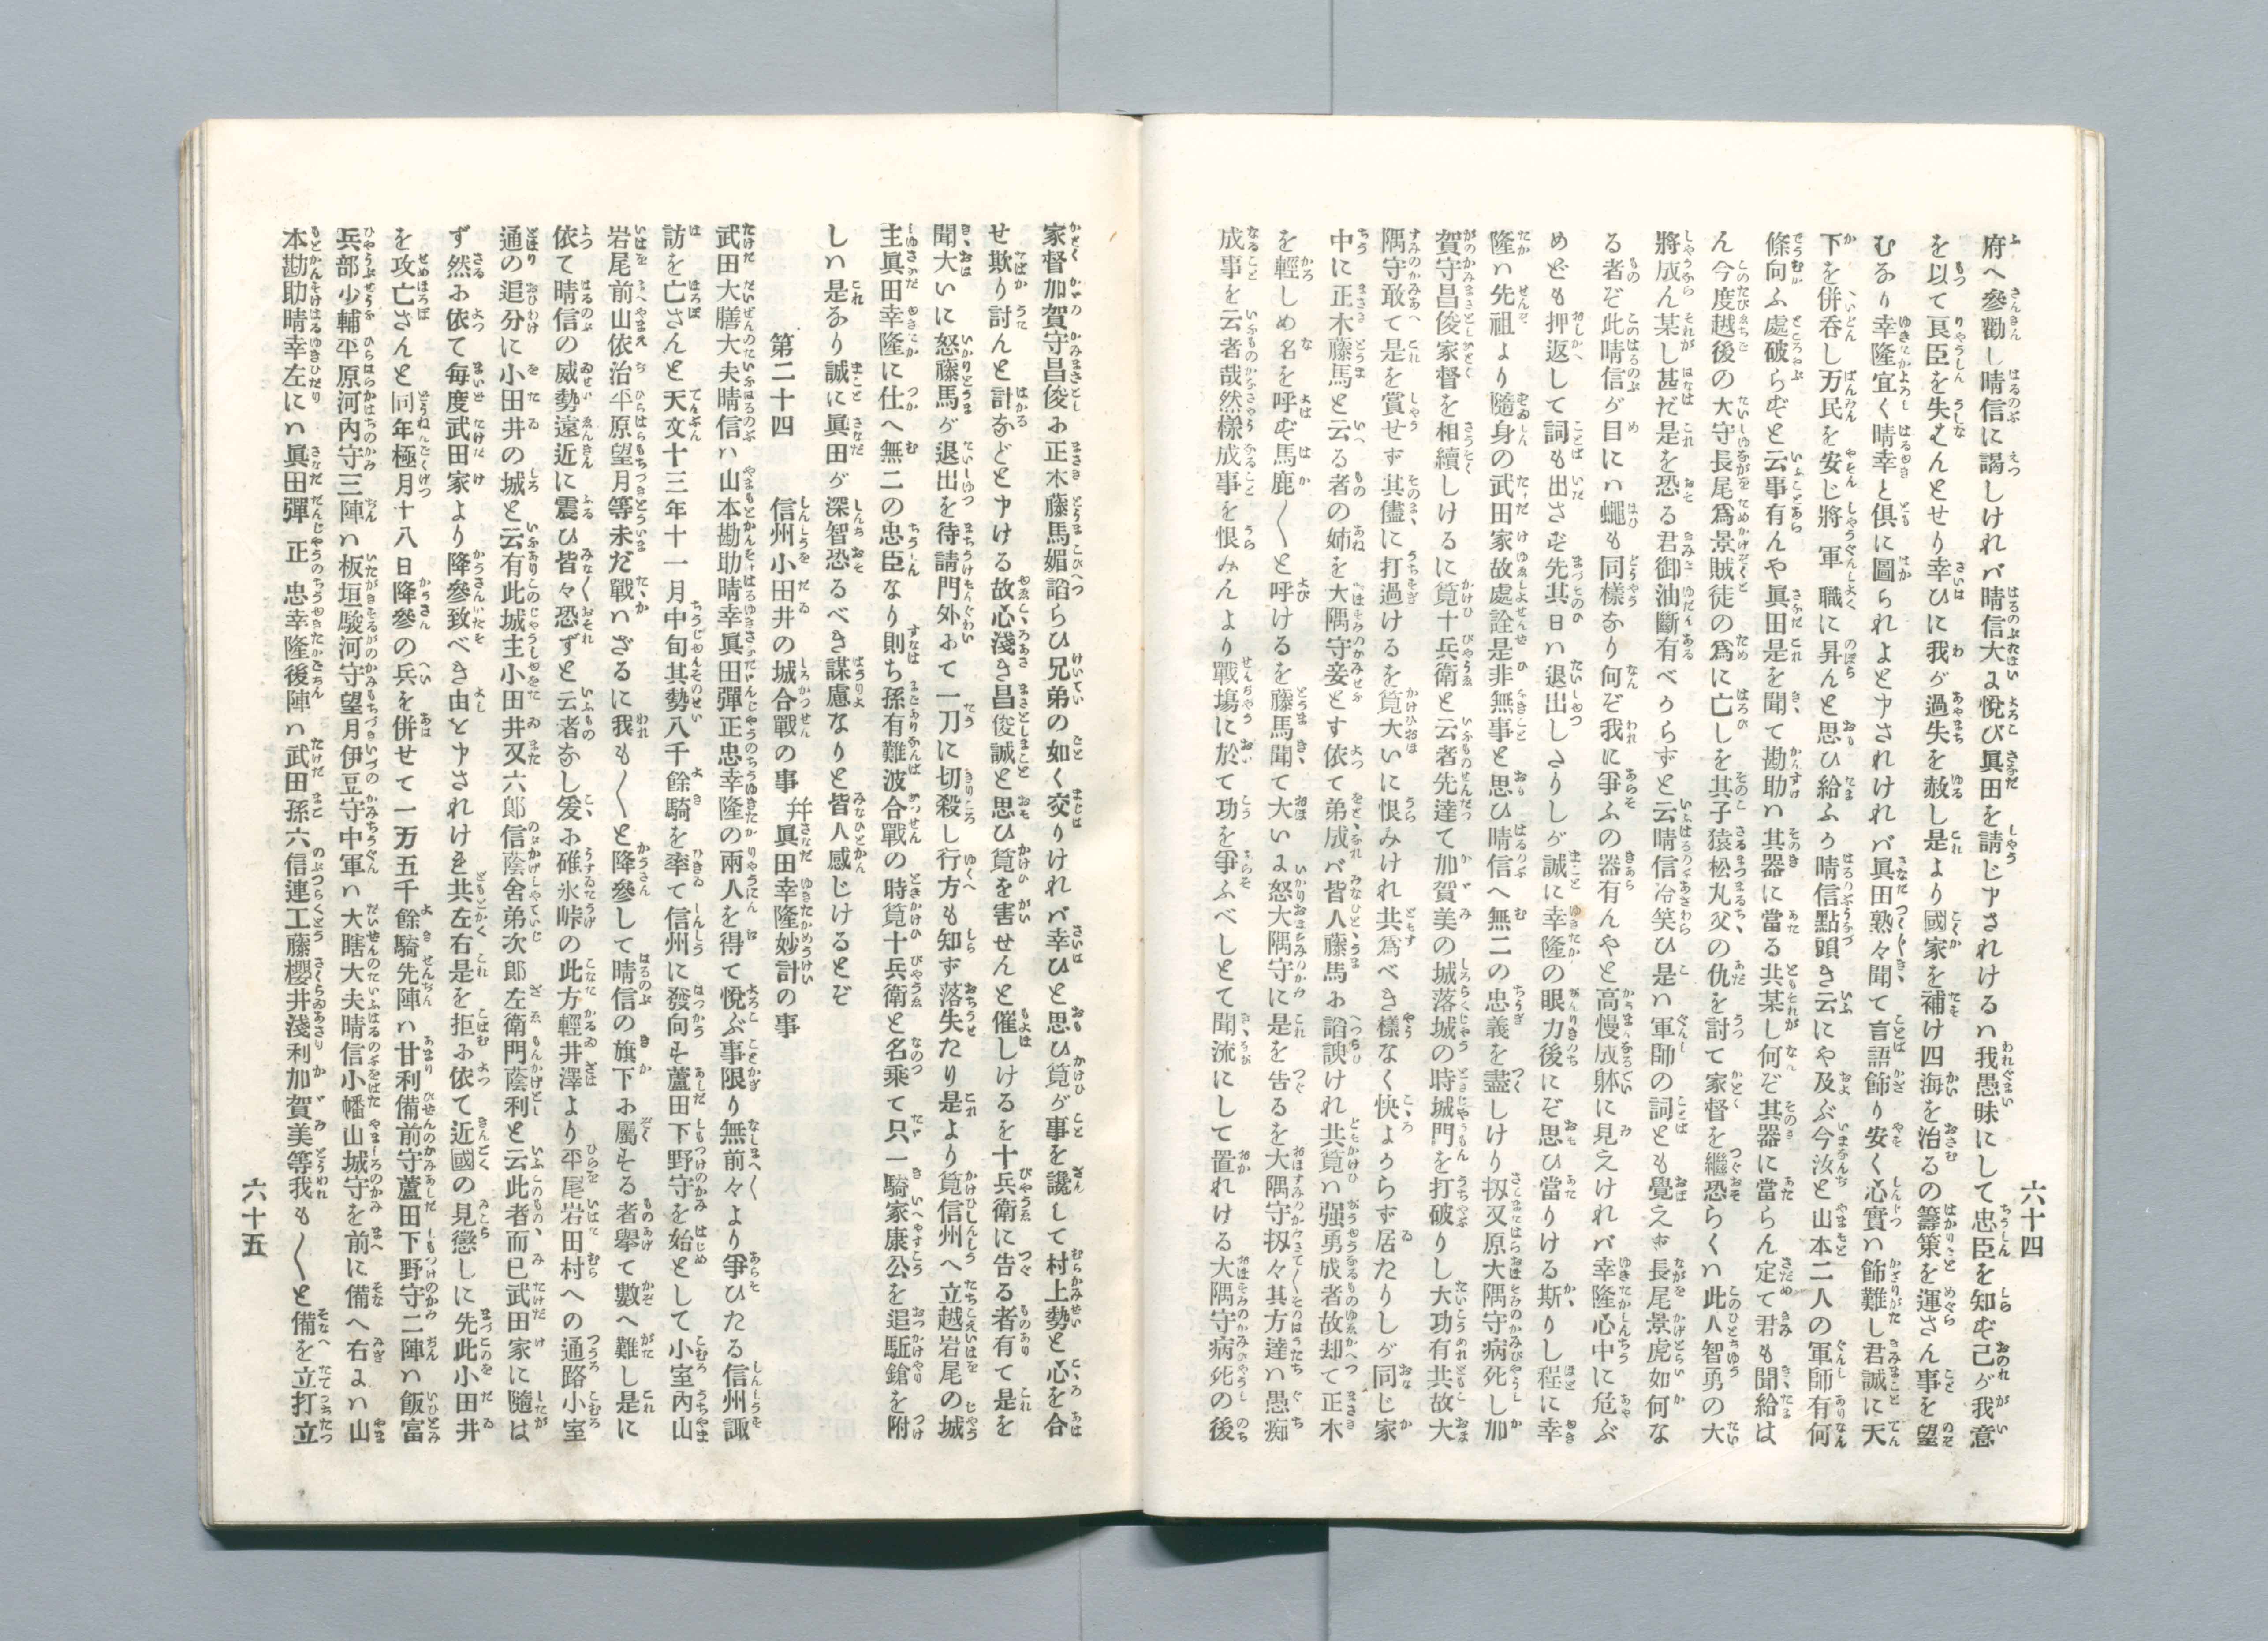 六十四
府へ參勸し晴信に謁しけれバ晴信大よ悅び眞田を請じ申されけるハ我愚昧にして忠臣を知らず己が我意
を以て良臣を失はんとせり幸ひに我が過失を赦し是より國家を補け四海を治るの籌策を運さん事を望
むなり幸隆宜く晴幸と俱に圖られよと申されけれバ眞田熟々聞て言語飾り安く心實ハ飾難し君誠に天
下を併呑し万民を安じ將軍職に昇んと思ひ給ふか晴信點頭き云にや及ぶ今汝と山本二人の軍師有何
條向ふ處破らずと云事有んや眞田是を聞て勘助ハ其器に當る共某し何ぞ其器に當らん定て君も聞給は
ん今度越後の大守長尾爲景賊徒の爲に亡しを其子猿松丸父の仇を討て家督を繼恐らくハ此人智勇の大
將成ん某し甚だ是を恐る君御油斷有べからずと云晴信冷笑ひ是ハ軍師の詞とも覺えず長尾景虎如何な
る者ぞ此晴信が目にハ蠅も同樣なり何ぞ我に爭ふの器有んやと高慢成躰に見えけれバ幸隆心中に危ぶ
めども押返して詞も出さず先其日ハ退出しさりしが誠に幸隆の眼力後にぞ思ひ當りける斯りし程に幸
隆ハ先祖より隨身の武田家故處詮是非無事と思ひ晴信へ無二の忠義を盡しけり扨又原大隅守病死し加
賀守昌俊家督を相續しけるに筧十兵衛と云者先達て加賀美の城落城の時城門を打破りし大功有共故大
隅守敢て是を賞せず其儘に打過けるを筧大いに恨みけれ共爲べき樣なく快よからず居たりしが同じ家
中に正木藤馬と云る者の姉を大隅守妾とす依て弟成バ皆人藤馬に諂諛けれ共筧ハ强勇成者故却て正木
を輕しめ名を呼ず馬鹿〳〵と呼けるを藤馬聞て大いよ怒大隅守に是を告るを大隅守扨々其方達ハ愚痴
成事を云者哉然樣成事を恨みんより戰塲に於て功を爭ふべしとて聞流にして置れける大隅守病死の後
家督加賀守昌俊に正木藤馬媚諂らひ兄弟の如く交りけれバ幸ひと思ひ筧が事を讒して村上勢と心を合
せ欺り討んと計などと申ける故心淺き昌俊誠と思ひ筧を害せんと催しけるを十兵衛に告る者有て是を
聞大いに怒藤馬が退出を待請門外にて一刀に切殺し行方も知ず落失たり是より筧信州へ立越岩尾の城
主眞田幸隆に仕へ無二の忠臣なり則ち孫有難波合戰の時筧十兵衛と名乘て只一騎家康公を追駈鎗を附
しハ是なり誠に眞田が深智恐るべき謀慮なりと皆人感じけるとぞ
第二十四　信州小田井の城合戰の事幷眞田幸隆妙計の事
武田大膳大夫晴信ハ山本勘助晴幸眞田彈正忠幸隆の兩人を得て悅ぶ事限り無前々より爭ひたる信州諏
訪を亡さんと天文十三年十一月中旬其勢八千餘騎を率て信州に發向す蘆田下野守を始として小室內山
岩尾前山依治平原望月等未だ戰ハざるに我も〳〵と降參して晴信の旗下に屬する者擧て數へ難し是に
依て晴信の威勢遠近に震ひ皆々恐ずと云者なし爰に碓氷峠の此方輕井澤より平尾岩田村への通路小室
通の追分に小田井の城と云有此城主小田井又六郞信蔭舍弟次郞左衛門蔭利と云此者而已武田家に隨は
ず然るに依て每度武田家より降參致べき由と申されけれ共左右是を拒むに依て近國の見懲しに先此小田井
を攻亡さんと同年極月十八日降參の兵を併せて一万五千餘騎先陣ハ甘利備前守蘆田下野守二陣ハ飯富
兵部少輔平原河內守三陣ハ板垣駿河守望月伊豆守中軍ハ大膳大夫晴信小幡山城守を前に備へ右よハ山
本勘助晴幸左にハ眞田彈正忠幸隆後陣ハ武田孫六信連工藤櫻井淺利加賀美等我も〳〵と備を立打立
六十五